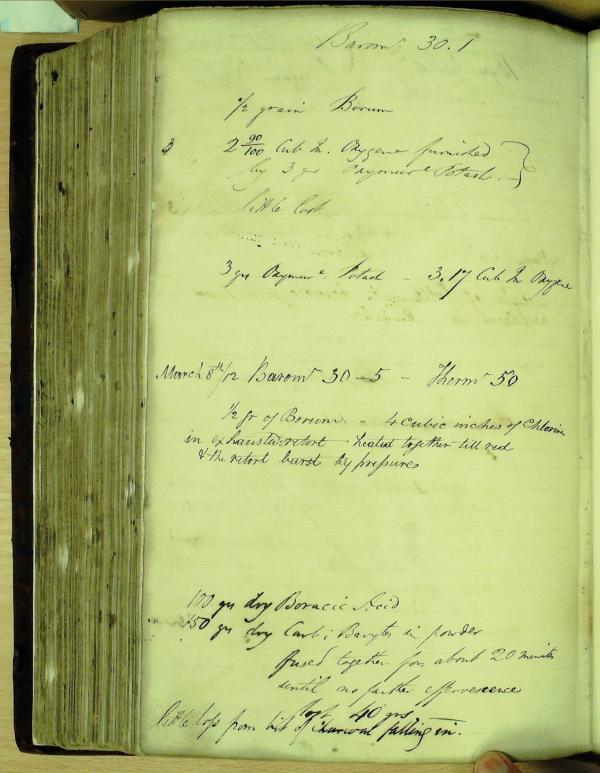 Baromr. 30.1
1/2 grain Borum
3 2 90/100 Cub In. Oxygene furnished
by 3 grs Oxymure Potash.
little lost
3 grs Oxymure Potash - 3.17 Cub In Oxygene
March 8th/12 Baromr 30-5 - Thermr 50
1/2 gr of Borum - 4 cubic inches of Chlorine
in exhausted retort heated together till red
& the retort burst by pressure
100 grs dry Boracic Acid
150 grs dry Carb: Barytes in powder
fused together for about 20 minutes
until no further effervescence
lost 40 grs
little loss from bit of Charcoal falling in.